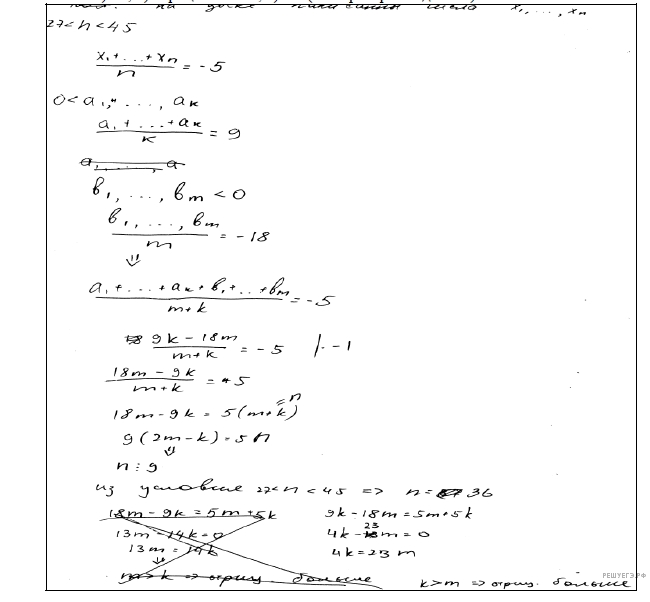 на доске написаны число x₁, ..., xₙ
27 < n < 45
(x₁ + ... + xₙ)/n = -5
0 < a₁, ..., aₖ
(a₁ + ... + aₖ)/k = 9
a₁, ..., a
b₁, ..., bₘ < 0
(b₁, ..., bₘ)/m = -18
⇓
(a₁ + ... + aₖ + b₁ + ... + bₘ)/(m+k) = -5
(9k - 18m)/(m+k) = -5 | · -1
(18m - 9k)/(m+k) = 5
18m - 9k = 5(m+k) = n
9(2m - k) = 5n
⇓
n ⋮ 9
из условие 27 < n < 45 => n = 36
18m - 9k = 5m + 5k
13m - 14k = 0
13m = 14k
⇓
m > k => отриц. больше
9k - 18m = 5m + 5k
4k - 23m = 0
4k = 23m
k > m => отриц. больше
РЕШУЕГЭ.РФ